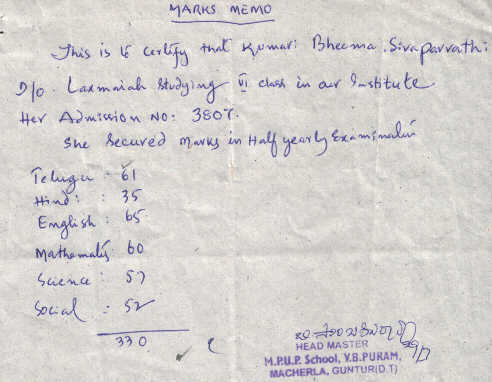 MARKS MEMO
This is to certify that Kumari Bheema. Sivaparvathi
D/o. Laxmaiah Studying VI class in our Institute
Her Admission No: 3807.
She Secured Marks in Half yearly Examination
Telugu : 61
Hindi : 35
English : 65
Mathematis 60
Science : 57
Social : 52
330
HEAD MASTER
M.P.U.P. School, V.B.PURAM,
MACHERLA, GUNTUR(D.T)